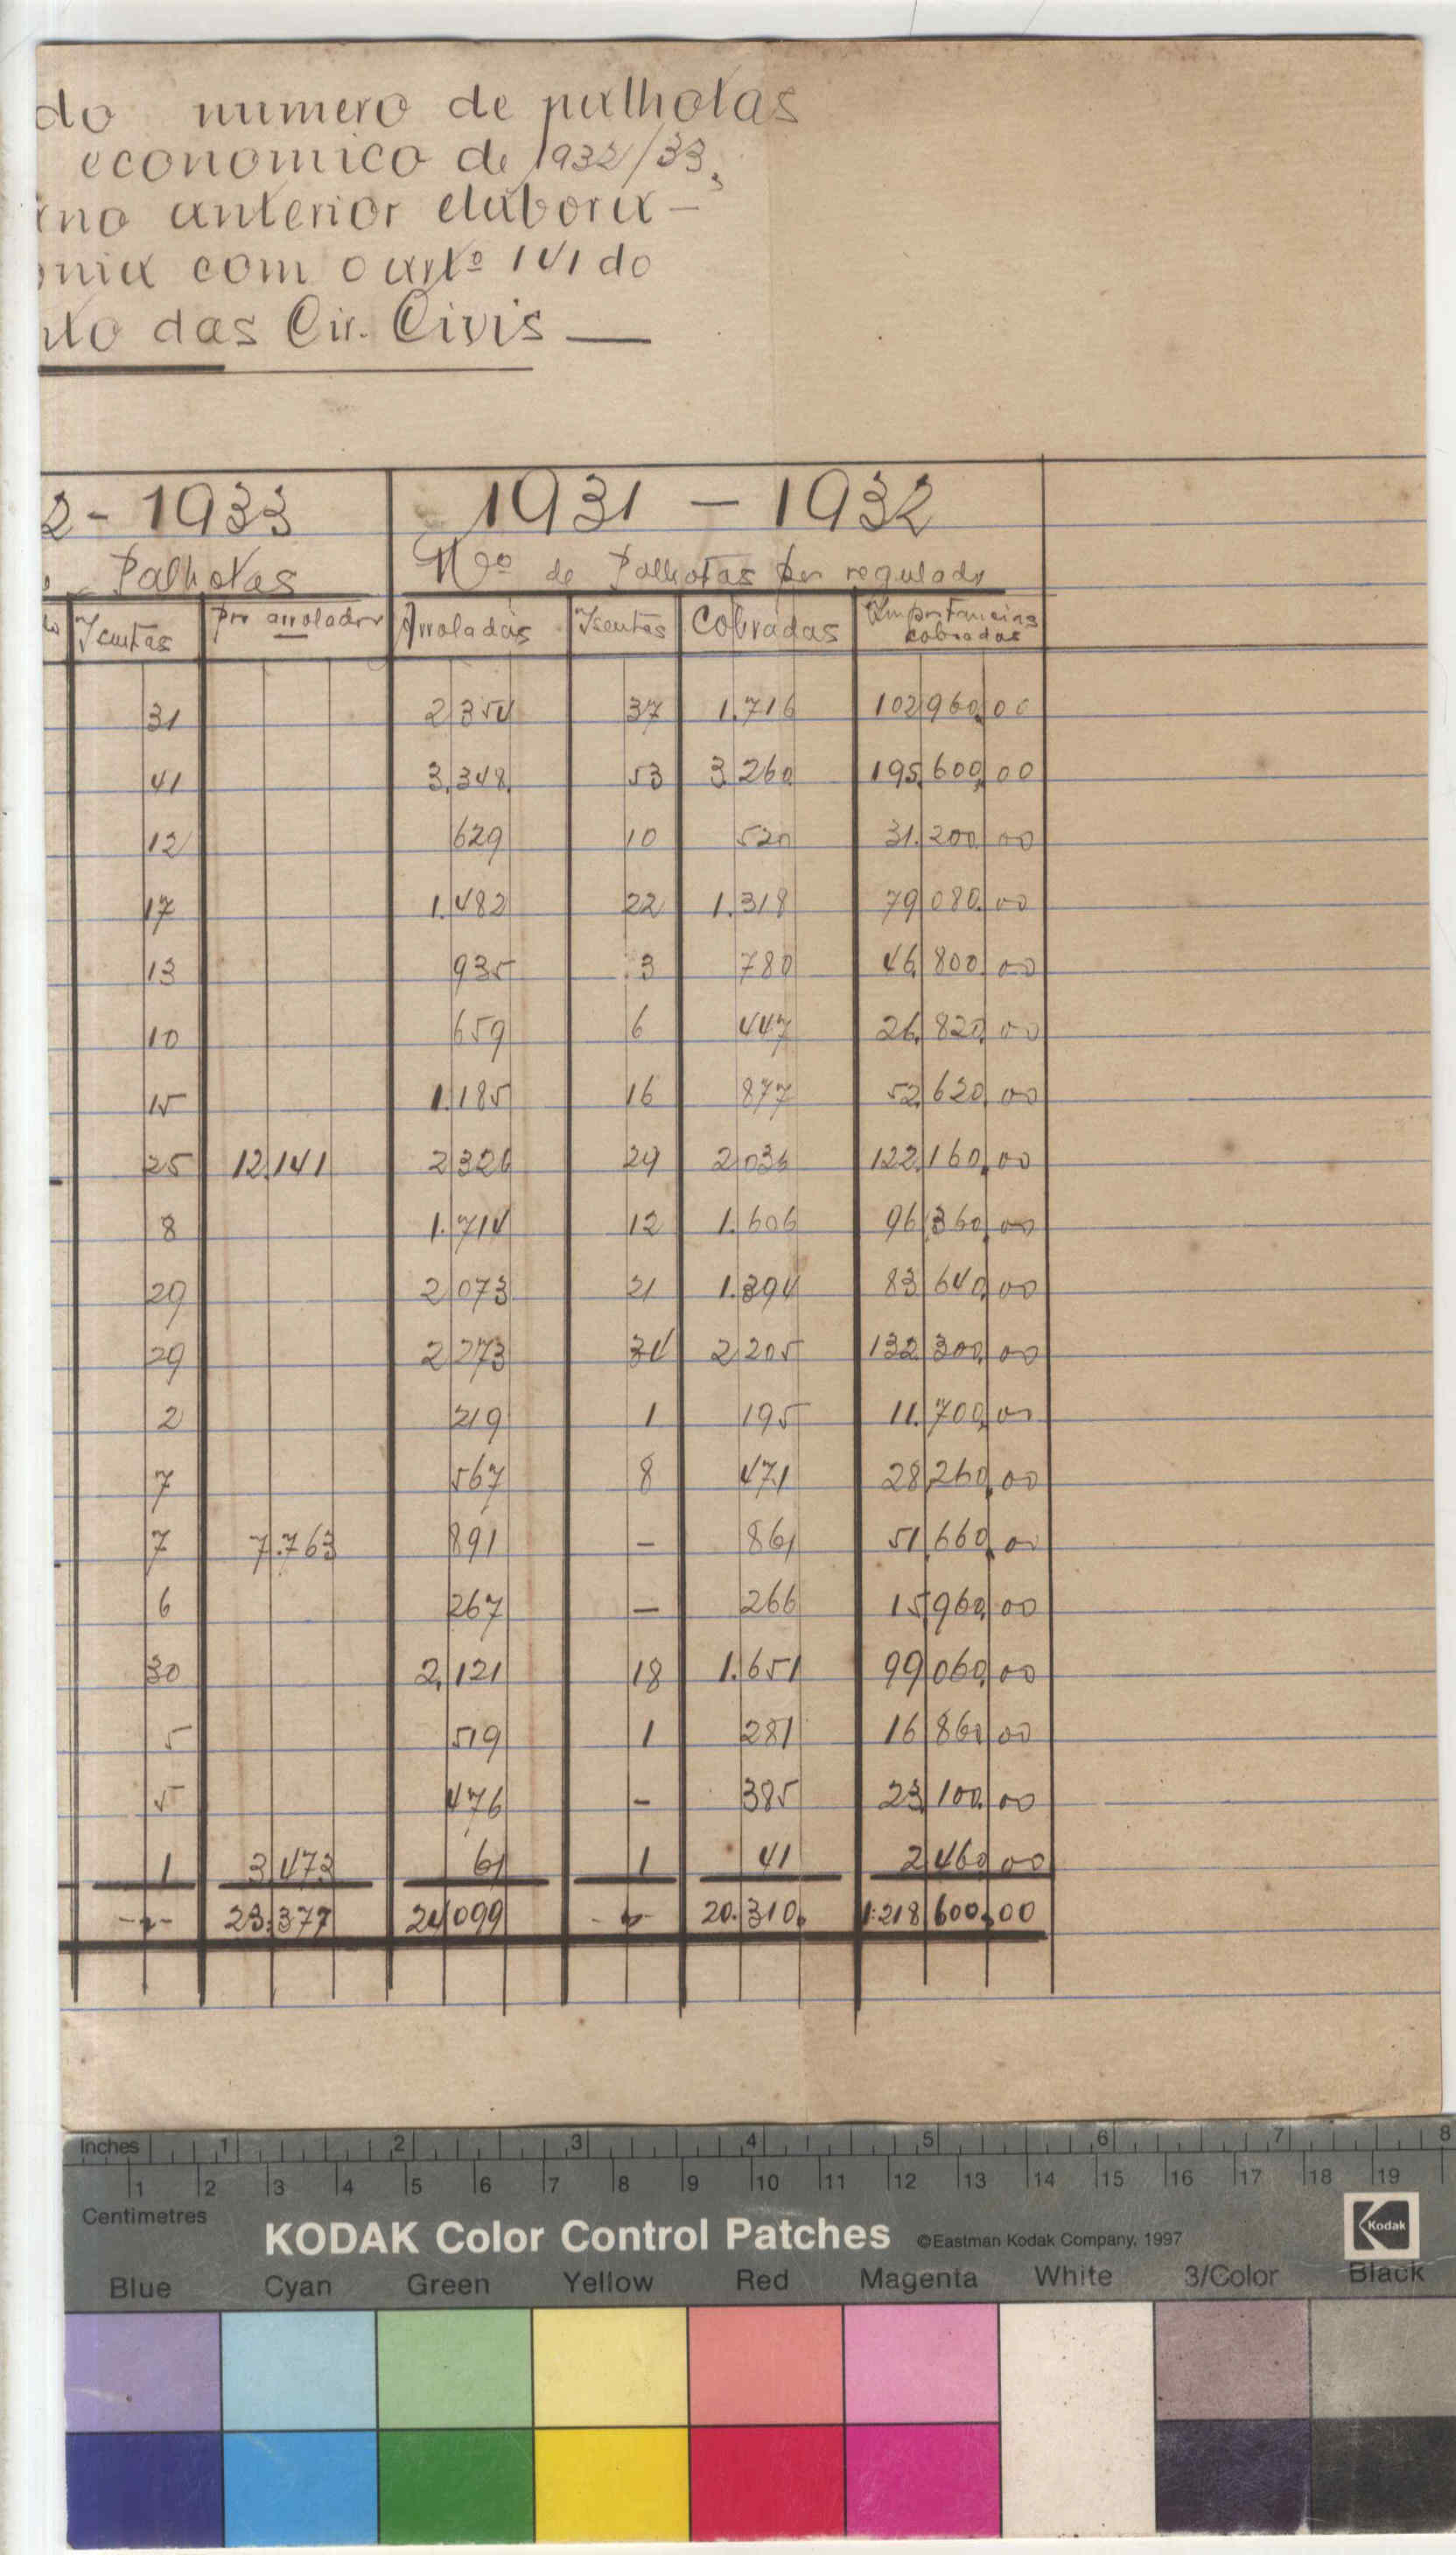 do numero de palhotas
economico de 1932/33,
ano anterior elabora-
onia com o artº 141 do
nto das Cir. Civis —
2 - 1933 1931 - 1932
Palhotas Nº de Palhotas por regulado
Isentas por arrolador Arroladas Isentas Cobradas Importancias cobradas
31 2354 37 1.716 102960,00
41 3.348 53 3.260 195.600,00
12 629 10 520 31.200,00
17 1.482 22 1.318 79080,00
13 935 3 780 46.800,00
10 659 6 447 26.820,00
15 1.185 16 877 52.620,00
25 12.141 2326 29 2036 122.160,00
8 1.714 12 1.606 96.360,00
29 2073 21 1.394 83640,00
29 2273 34 2205 132.300,00
2 219 1 195 11.700,00
7 567 8 471 28,260,00
7 7.763 891 - 861 51.660,00
6 267 - 266 15960,00
30 2.121 18 1.651 99060,00
5 519 1 281 16860,00
5 476 - 385 23.100,00
1 3.473 61 1 41 2460,00
23.377 24099 20.310 1.218.600,00
Inches 1 2 3 4 5 6 7 8
1 2 3 4 5 6 7 8 9 10 11 12 13 14 15 16 17 18 19
Centimetres
KODAK Color Control Patches ©Eastman Kodak Company, 1997 Kodak
Blue Cyan Green Yellow Red Magenta White 3/Color Black